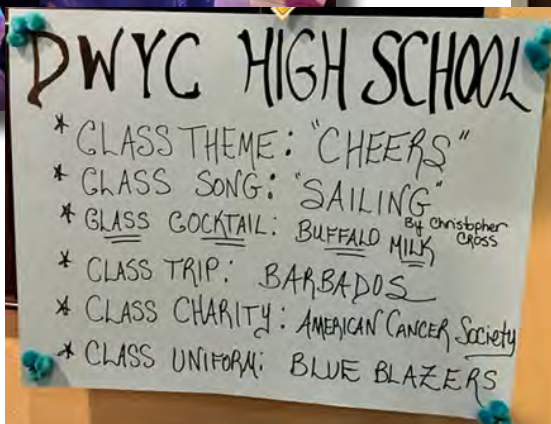 DWYC HIGH SCHOOL
* CLASS THEME: "CHEERS"
* CLASS SONG: "SAILING"
By Christopher CROSS
* CLASS COCKTAIL: BUFFALO MILK
* CLASS TRIP: BARBADOS
* CLASS CHARITY: AMERICAN CANCER Society
* CLASS UNIFORM: BLUE BLAZERS